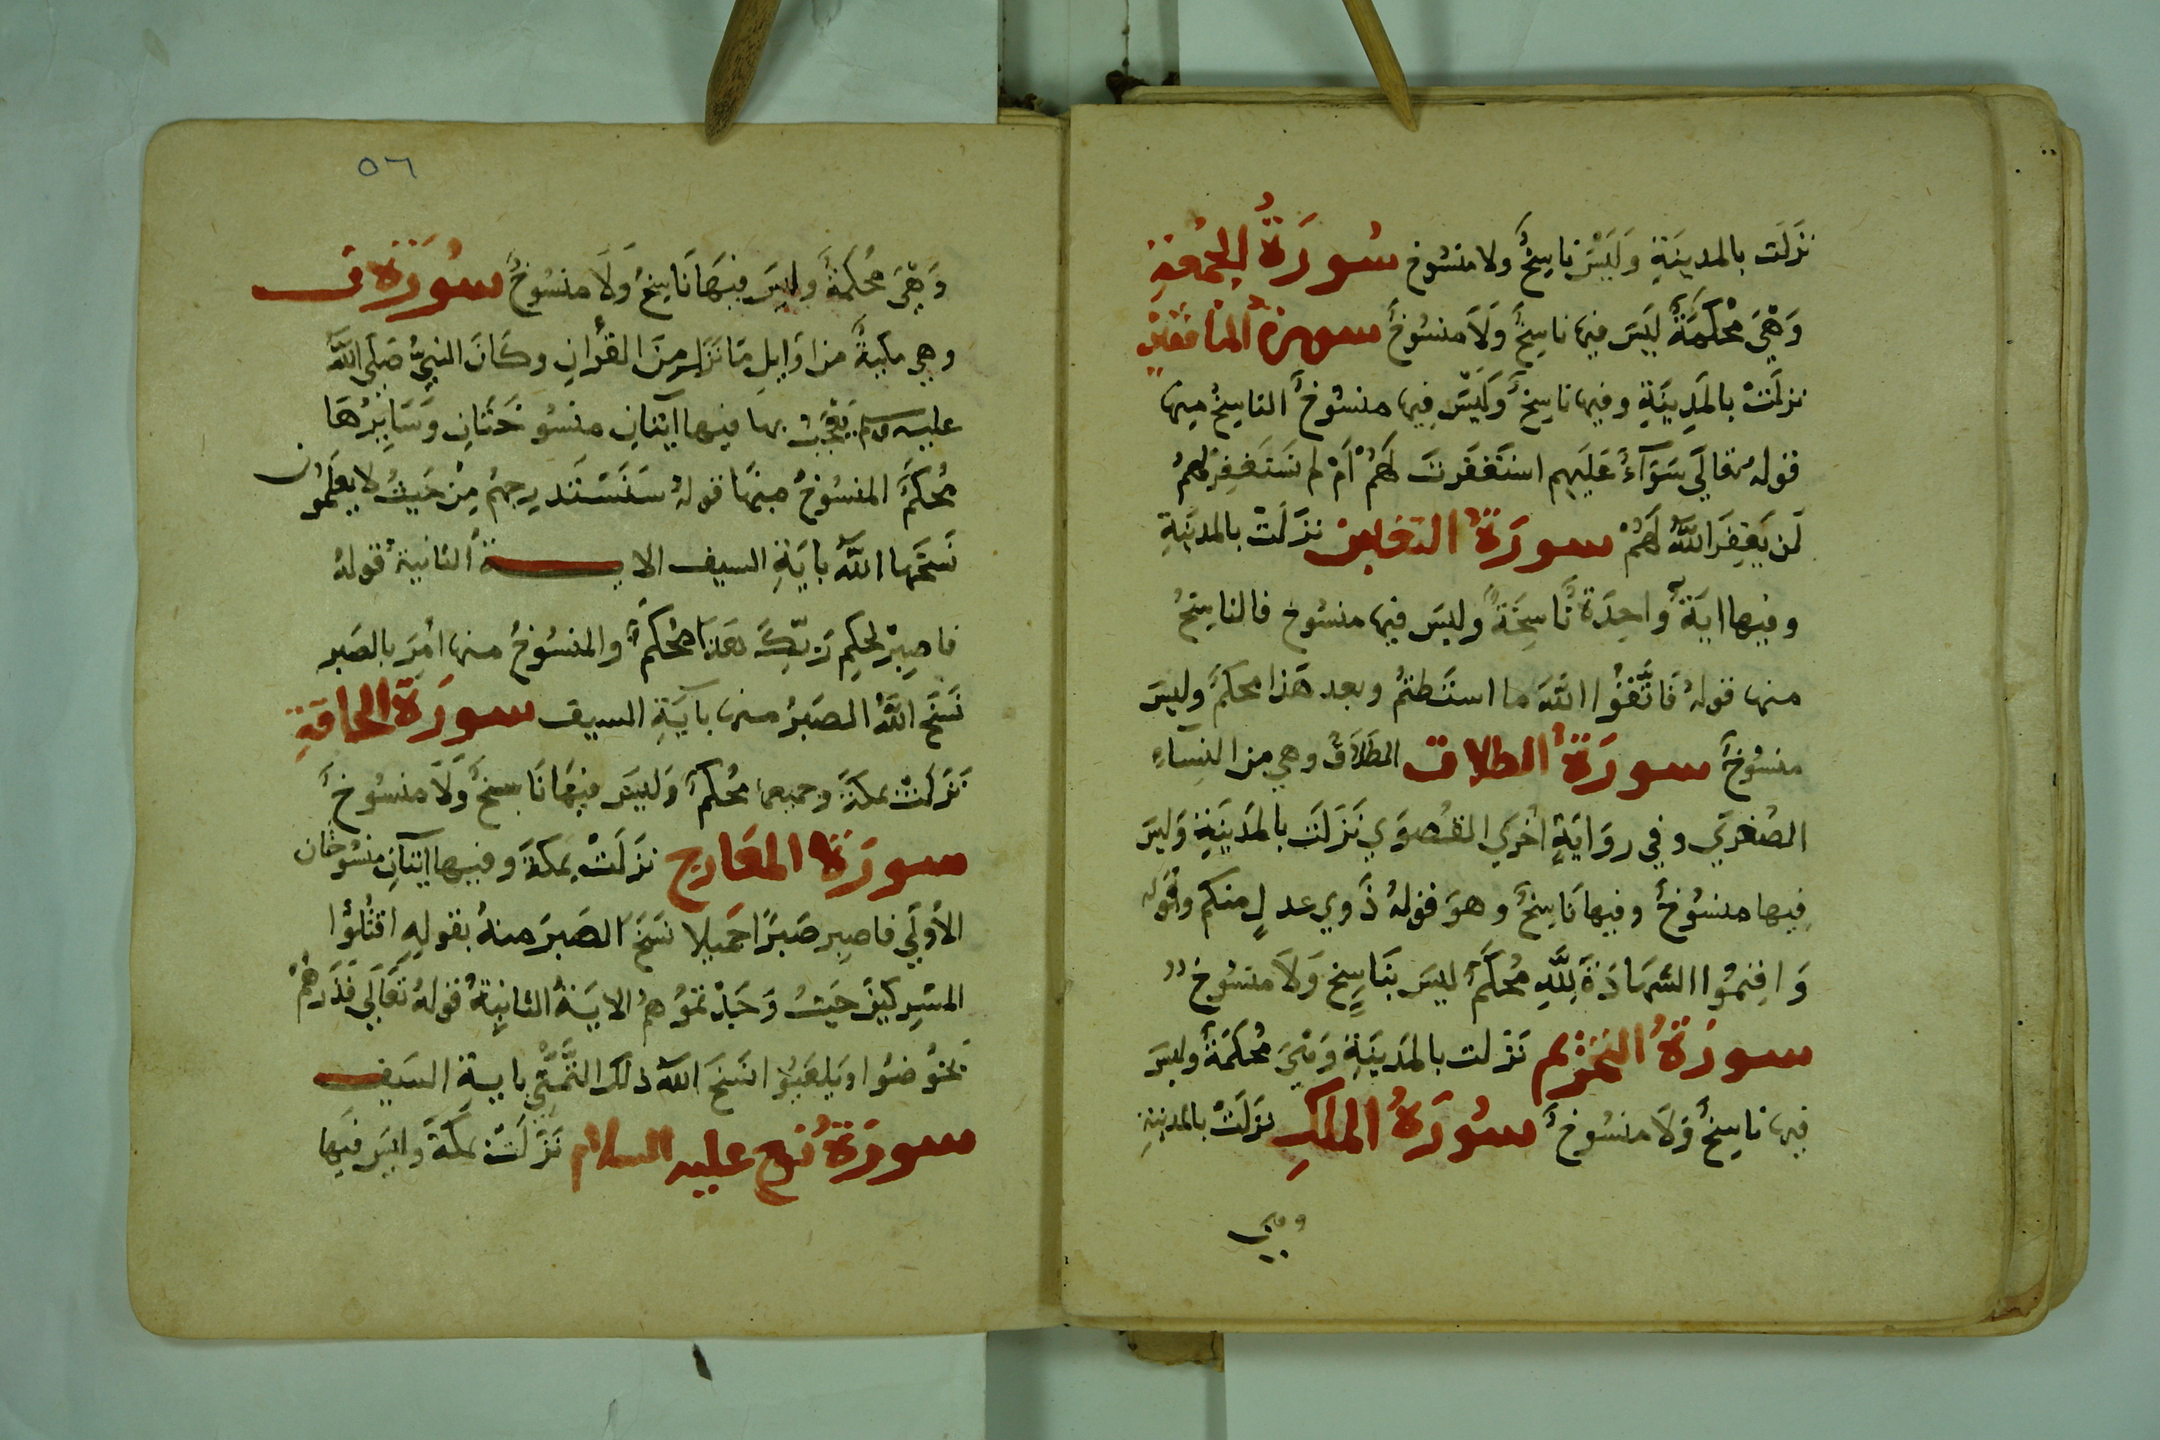 نَزَلَت بالمدينَةِ وَلَيْسَ نَاسِخٌ ولا منسُوخ سُورَةُ الجُمعَةِ
وَهْيَ مُحْكَمَةٌ لَيسَ فيها ناسِخٌ وَلَا منسُوخٌ سورةُ المنافقين
نزلَتْ بالمَدِينَةِ وفيها ناسِخٌ وَلَيسَ فِيها منسُوخٌ الناسِخُ مِنها
قولهُ تعَالَى سَوَآءٌ عَلَيهِم استَغفَرتَ لَهُمْ اَمْ لم تَستَغفِرْ لهُمْ
لَن يَغفِرَ اللَّهُ لَهُمْ سورَةُ التغابن نَزَلَتْ بالمدينَةِ
وفيها ايَةٌ وَاحِدَةٌ نَّاسِخَةٌ وليسَ فيها منسُوخ فالناسِخُ
منها قولهُ فَاتَّقُوا اللَّهَ ما استَطعتُم وبعد هَذا محكمٌ وليسَ
منسُوخٌ سورَةُ الطلاق الطَلَاقُ وهي من النِسآءِ
الصُغرَي وفي روَايَةٍ اُخرَي القُصوَي نَزَلَت بالمَدينَةِ وَليسَ
فِيها منسُوخٌ وفيها نَاسِخٌ وهوَ قولهُ ذَوي عدلٍ منكم وقَوله
وَاقِيمُوا الشَهادَةَ لِلَّهِ مُحكَمٌ ليسَ بنَاسِخٍ وَلَا منسُوخ
سورَةُ التحرِيم نَزَلت بالمَدينَةِ وَهْيَ مُحكَمَةٌ وليسَ
فيها ناسِخٌ وَلَا منسُوخٌ سُورَةُ الملكِ نَزَلَتْ بالمدينةِ
وهي
٥٦
وَهْيَ مُحكمَةٌ وليسَ فيهَا نَاسِخٌ وَلَا منسُوخٌ سُورَةُ ن
وهي مكيةٌ من اوَايلِ مَا نَزَلَ مِنَ القُرآنِ وكَانَ النبيُّ صَلى اللَّهُ
عليه وسلم بها فيها آيتانِ منسُوخَتَانِ وَسَايِرُهَا
مُحكَمٌ المنسُوخُ مِنهَا قولهُ سَنَسْتَدرِجهُم مِنْ حَيثُ لا يعلَمُون
نَسَخَها اللَّهُ بايَةِ السيف الايــــةُ الثانيةُ قولهُ
فاصِبِرْ لحكمِ رَبّكَ هَذَا مُحكَمٌ والمنسُوخُ منها اَمرَ بالصَبر
نَسَخَ اللَّهُ الصَبرُ منها بآيَةِ السيف سورَةُ الحاقةِ
نَزَلَتْ بمكةَ وجميعها مُحكَمٌ وَليسَ فيهَا نَاسِخٌ وَّلَا منسُوخٌ
سورَةُ المعَارج نَزَلَتْ بِمكةَ وفيها آيتانِ منسُوخَتان
الأَوَلَي فاصبِر صَبرًا جَميلا نَسَخَ الصَبرَ منهُ بقولهِ اقتُلُوا
المشرِكينَ حَيثُ وَجَدْتمُوُهُمْ الايَةُ الثانيةُ قولهُ تَعَالَي فَذَرهُمْ
يَخُوضُوا ويَلعَبُوا نَسَخَ اللَّه ذلك بايــةِ السَيف
سورَةُ نوح عليه السلام نَزَلَتْ بمكَةَ وليسَ فيها